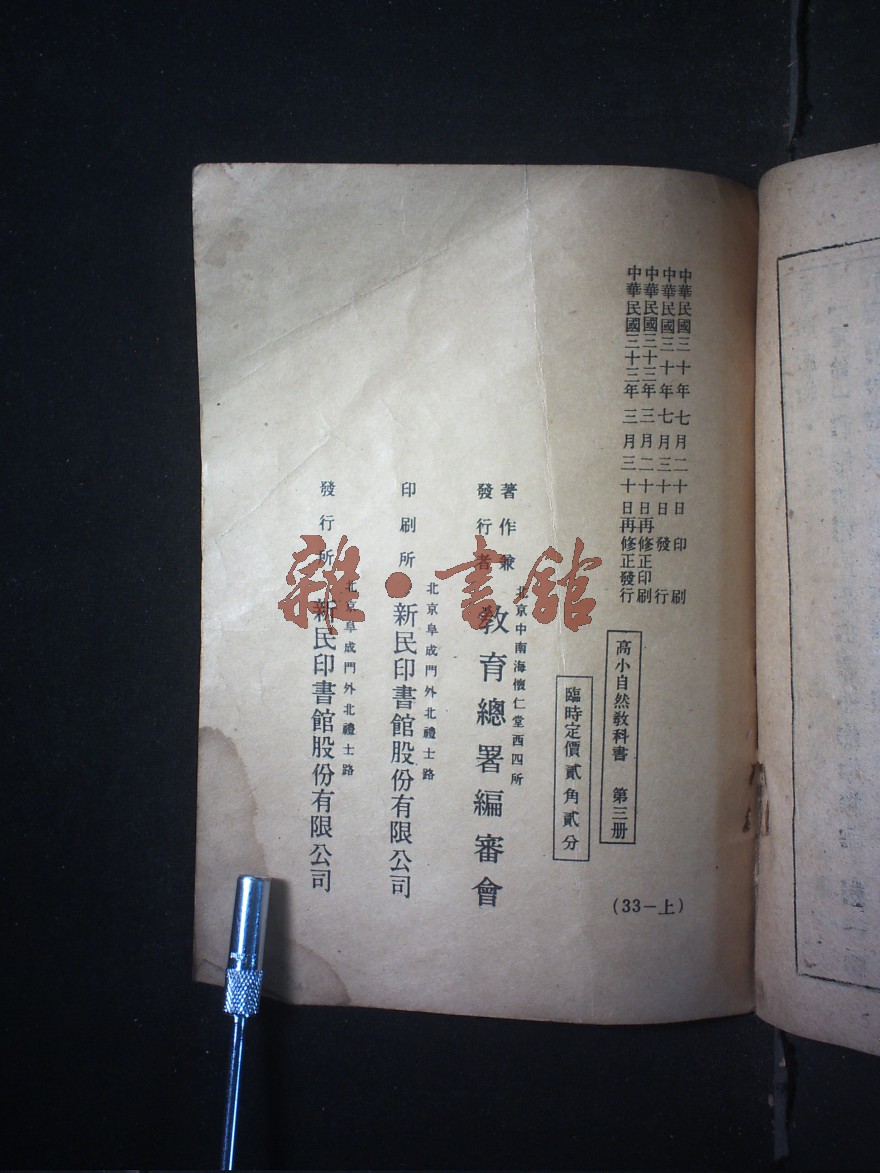 中華民國三十年七月二十日印刷
中華民國三十年七月三十日發行
中華民國三十三年三月二十日再修正印刷
中華民國三十三年三月三十日再修正發行
高小自然教科書 第三册
臨時定價貳角貳分
(33—上)
著作兼
發行者
北京中南海懷仁堂西四所
教育總署編審會
印刷所
北京阜成門外北禮士路
新民印書館股份有限公司
發行所
北京阜成門外北禮士路
新民印書館股份有限公司
雜·書館